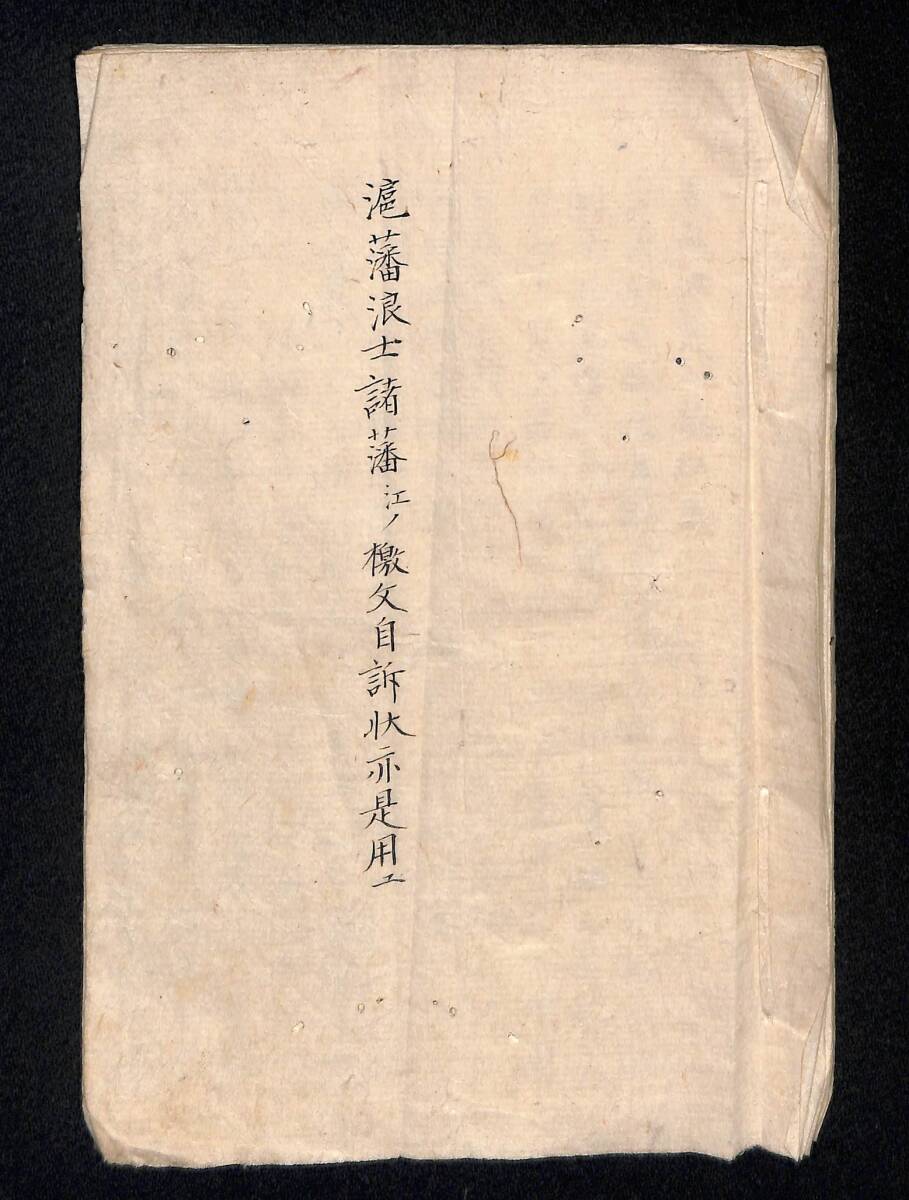 滬藩浪士諸藩江ノ檄文自訴状亦是用ユ